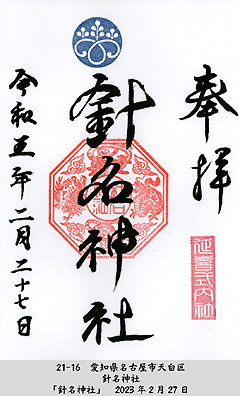 奉拝
延喜式内社
針名神社
令和五年二月二十七日
21-16 愛知県名古屋市天白区
針名神社
「針名神社」 2023年2月27日